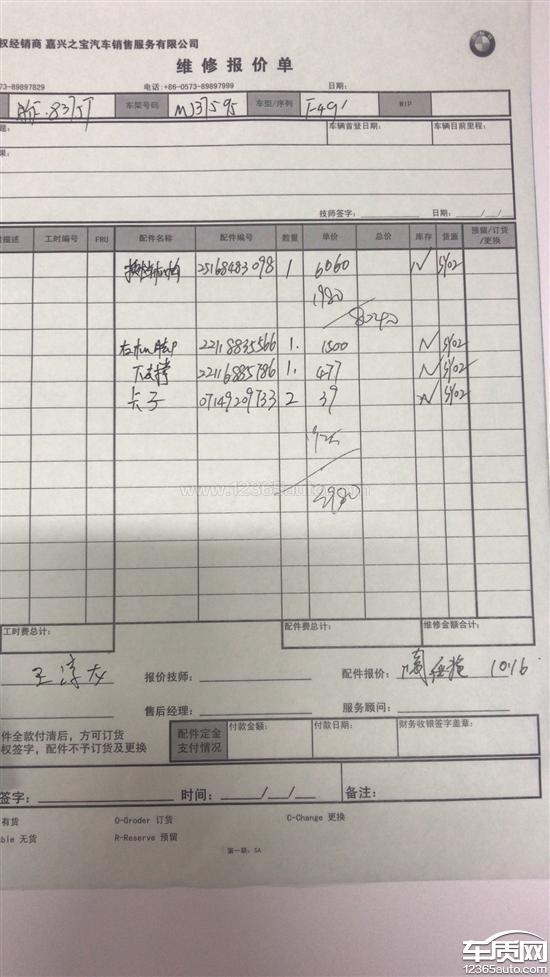 权经销商 嘉兴之宝汽车销售服务有限公司
维修报价单
573-89897829 电话:+86-0573-89897999 日期:
车架号码 MJ37595 车型/序列 F49 WIP
题: 车辆首登日期: 车辆目前里程:
果:
技师签字: 日期: / /
描述 工时编号 FRU 配件名称 配件编号 数量 单价 总价 库存 货源 预留/订货/更换
25168483098 1 6060 5/02
1980
8040
22118835566 1. 1500 5/02
下支撑 22116885786 1. 477 5/02
卡子 07149209733 2 39 5/02
www.12365auto.com
工时费总计: 配件费总计: 维修金额合计:
王 报价技师: 配件报价: 10.16
售后经理: 服务顾问:
件全款付清后，方可订货
权签字，配件不予订货及更换
配件定金支付情况 付款金额: 付款日期: 财务收银签字盖章:
签字: 时间: / / 备注:
有货 O-Oroder 订货 C-Change 更换
ble 无货 R-Reserve 预留
第一联: SA
车质网
12365auto.com